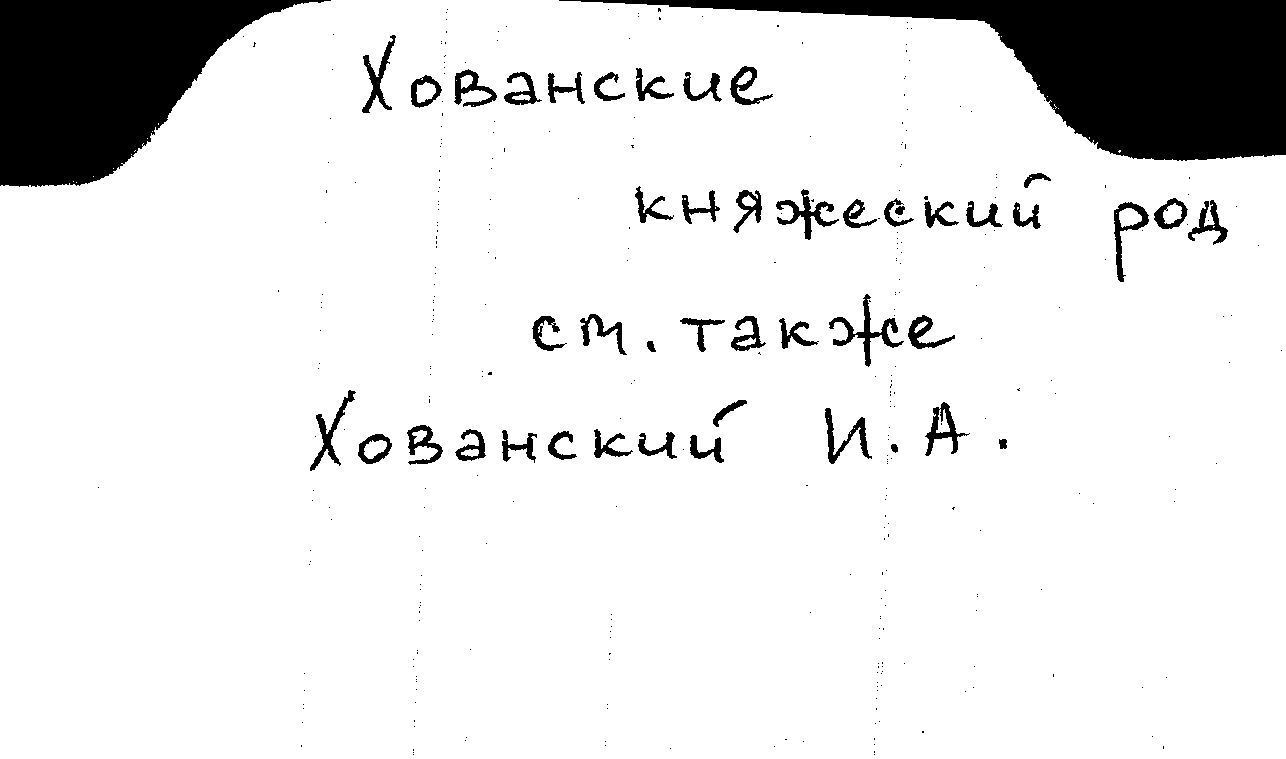 Хованские
княжеский род
см. также
Хованский И.А.